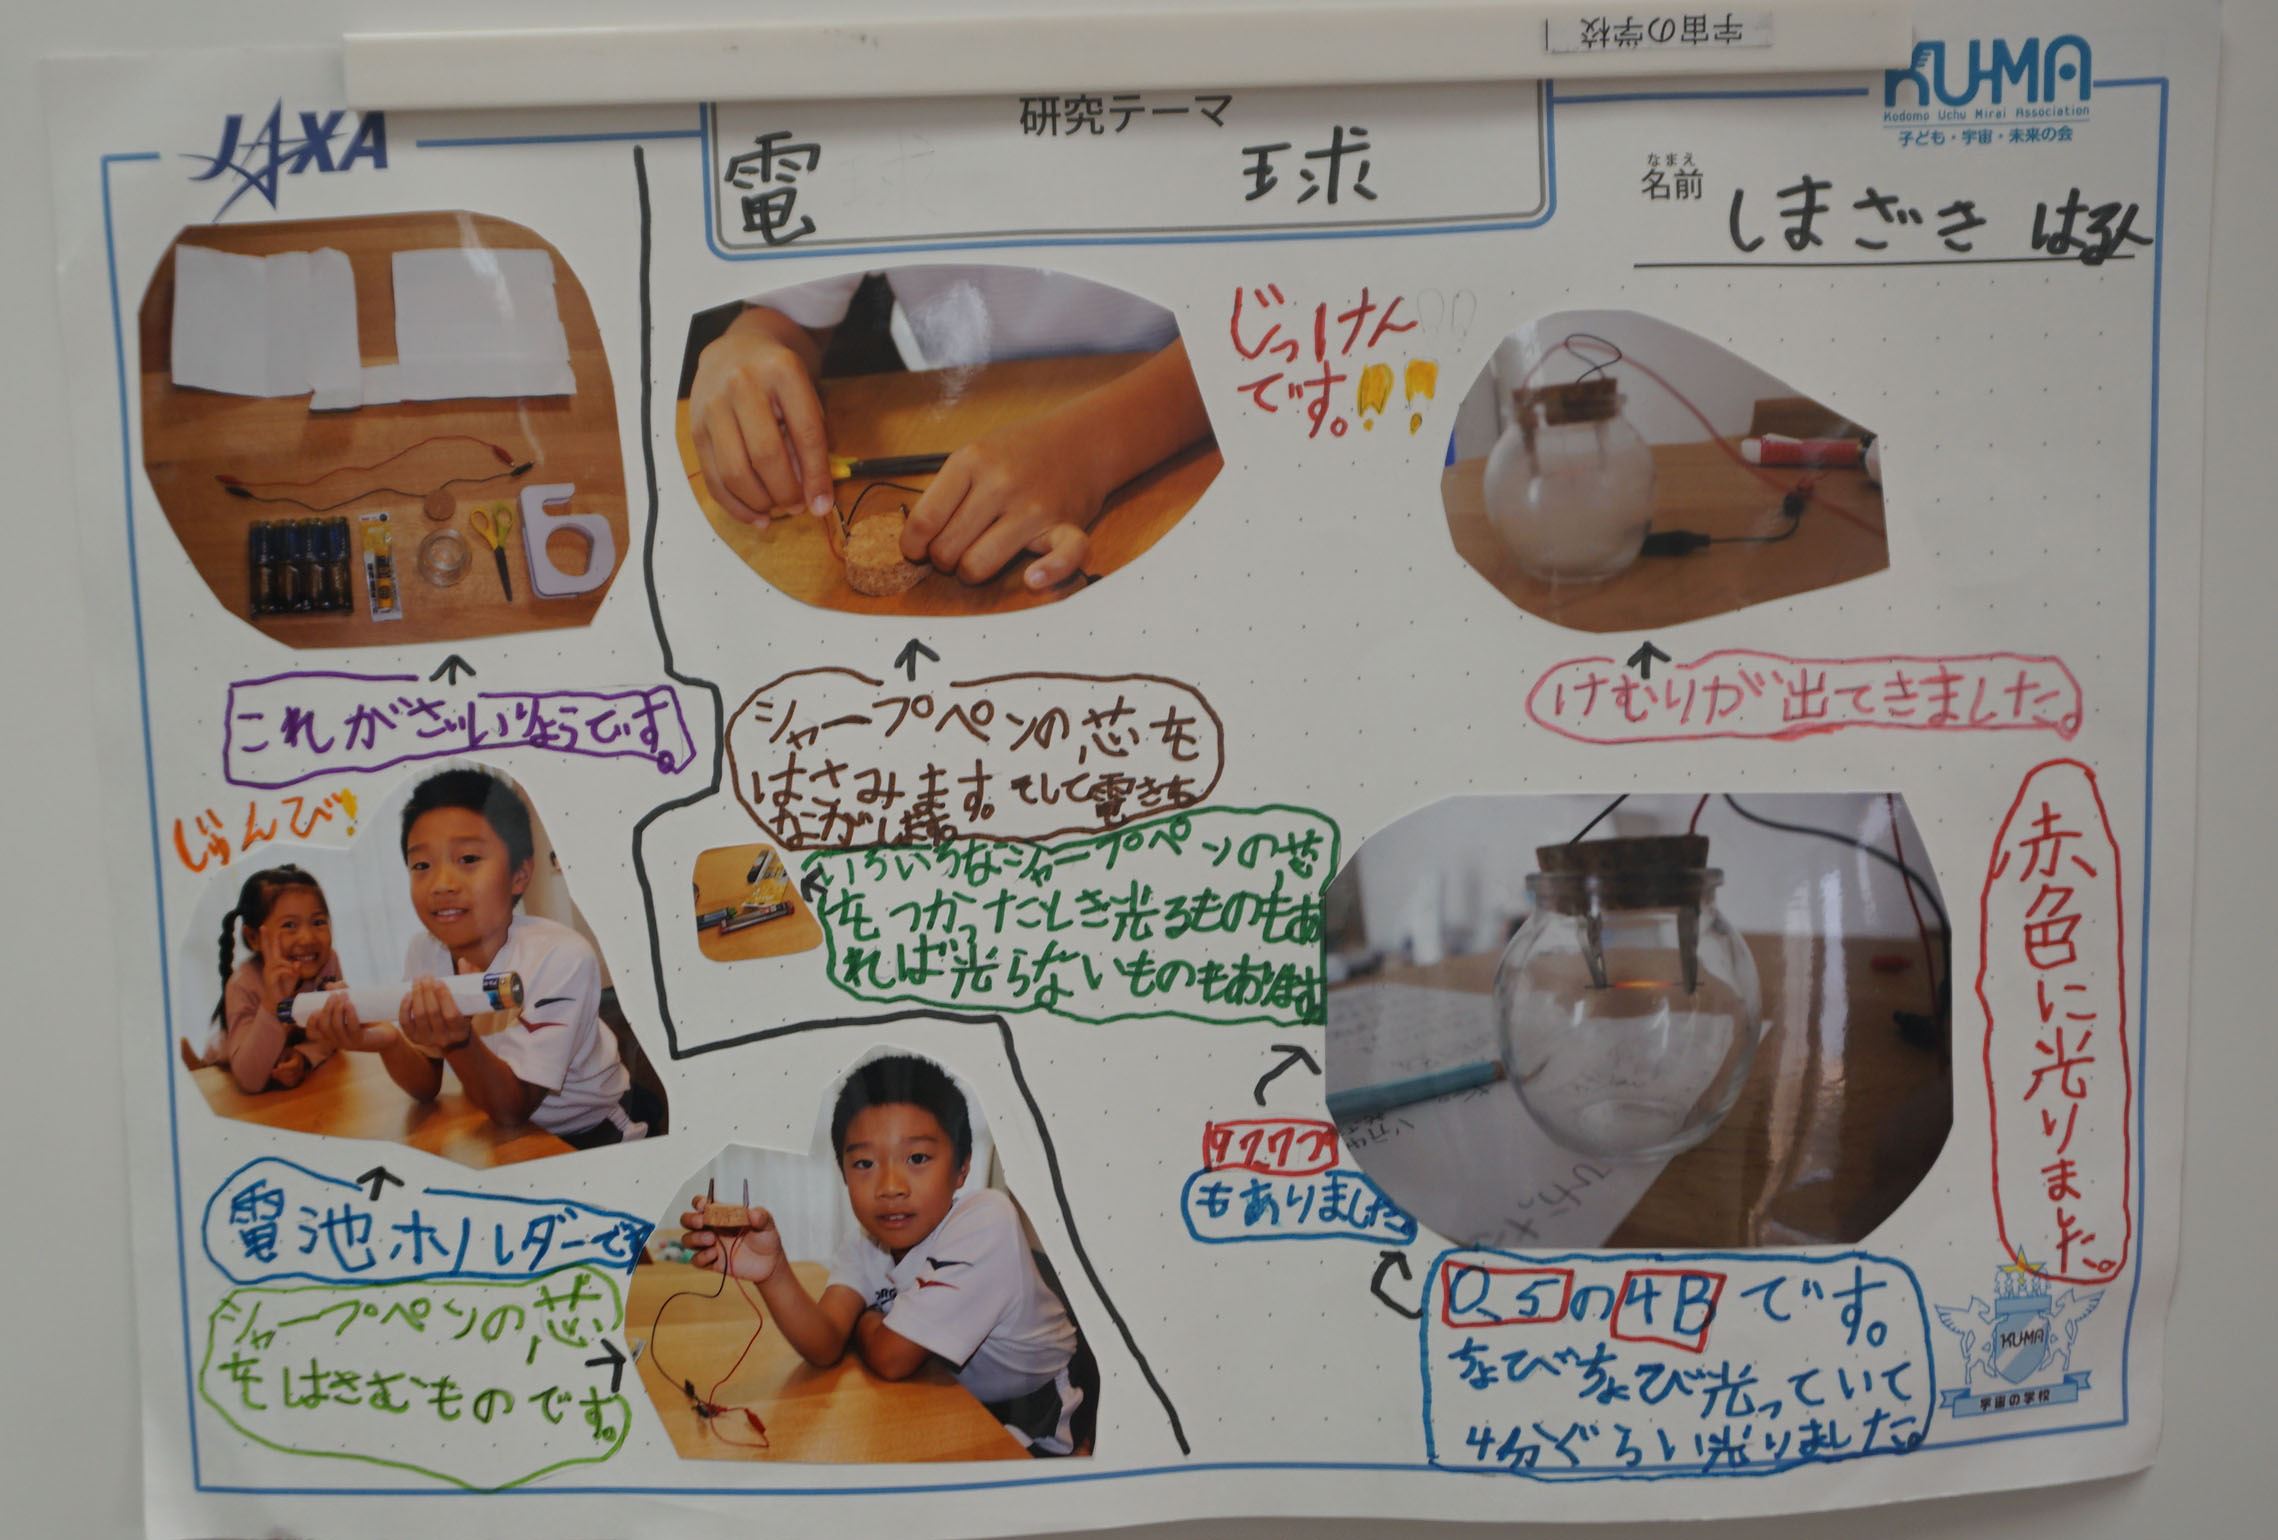 宇宙の学校
JAXA
KU-MA
Kodomo Uchu Mirai Association
子ども・宇宙・未来の会
研究テーマ
電球
なまえ
名前
しまざき はる人
これがざいりょうです。
じゅんび!
電池ホルダーです
シャープペンの芯
をはさむものです。
じっけん
です。!!
シャープペンの芯を
はさみます。そして電きを
ながします。
いろいろなシャープペンの芯
をつかったとき光るものもあ
れば光らないものもあります
けむりが出てきました。
赤色に光りました。
もありました。
0.5の4Bです。
ちょびちょび光っていて
4分ぐらい光りました。
KU-MA
宇宙の学校